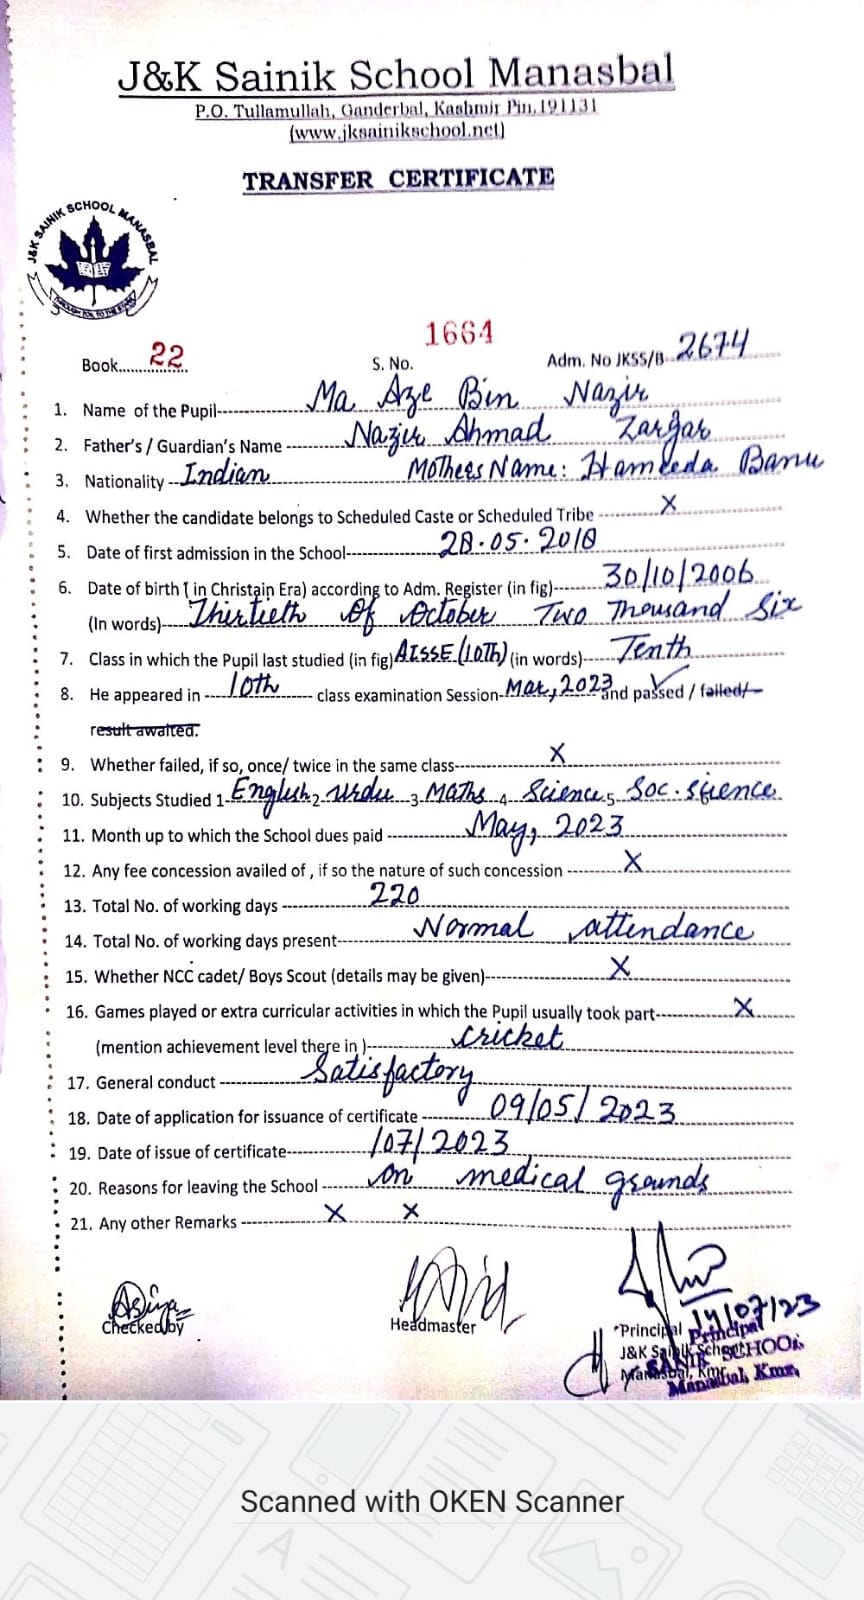 J&K Sainik School Manasbal
P.O. Tullamullah, Ganderbal, Kashmir Pin. 191131
(www.jksainikschool.net)
TRANSFER CERTIFICATE
J&K SAINIK SCHOOL MANASBAL
Book......22...... S. No. 1664 Adm. No JKSS/B...2674
1. Name of the Pupil---Ma Aze Bin Nazir
2. Father's / Guardian's Name ---Nazir Ahmad Zargar
3. Nationality --Indian Mothers Name: Hameeda Banu
4. Whether the candidate belongs to Scheduled Caste or Scheduled Tribe ---X
5. Date of first admission in the School---28.05.2018
6. Date of birth ( in Christain Era) according to Adm. Register (in fig)---30/10/2006
(In words)---Thirtieth Of October Two Thousand Six
7. Class in which the Pupil last studied (in fig) AISSE (10Th) (in words)---Tenth
8. He appeared in ---10th--- class examination Session-Mar, 2023 and passed / failed/
result awaited.
9. Whether failed, if so, once/ twice in the same class---X
10. Subjects Studied 1 English 2 Urdu 3 Maths 4 Science 5 Soc. Science
11. Month up to which the School dues paid ---May, 2023
12. Any fee concession availed of , if so the nature of such concession ---X
13. Total No. of working days ---220
14. Total No. of working days present---Normal attendance
15. Whether NCC cadet/ Boys Scout (details may be given)---X
16. Games played or extra curricular activities in which the Pupil usually took part---X
(mention achievement level there in )---cricket
17. General conduct ---Satisfactory
18. Date of application for issuance of certificate ---09/05/2023
19. Date of issue of certificate---/07/2023
20. Reasons for leaving the School ---on medical grounds
21. Any other Remarks ---X X
Asiya
Checked by Headmaster 14/07/23
Principal Principal
J&K Sainik School SAINIK SCHOOL
Manasbal, Kmr. Manasbal, Kmr.
Scanned with OKEN Scanner